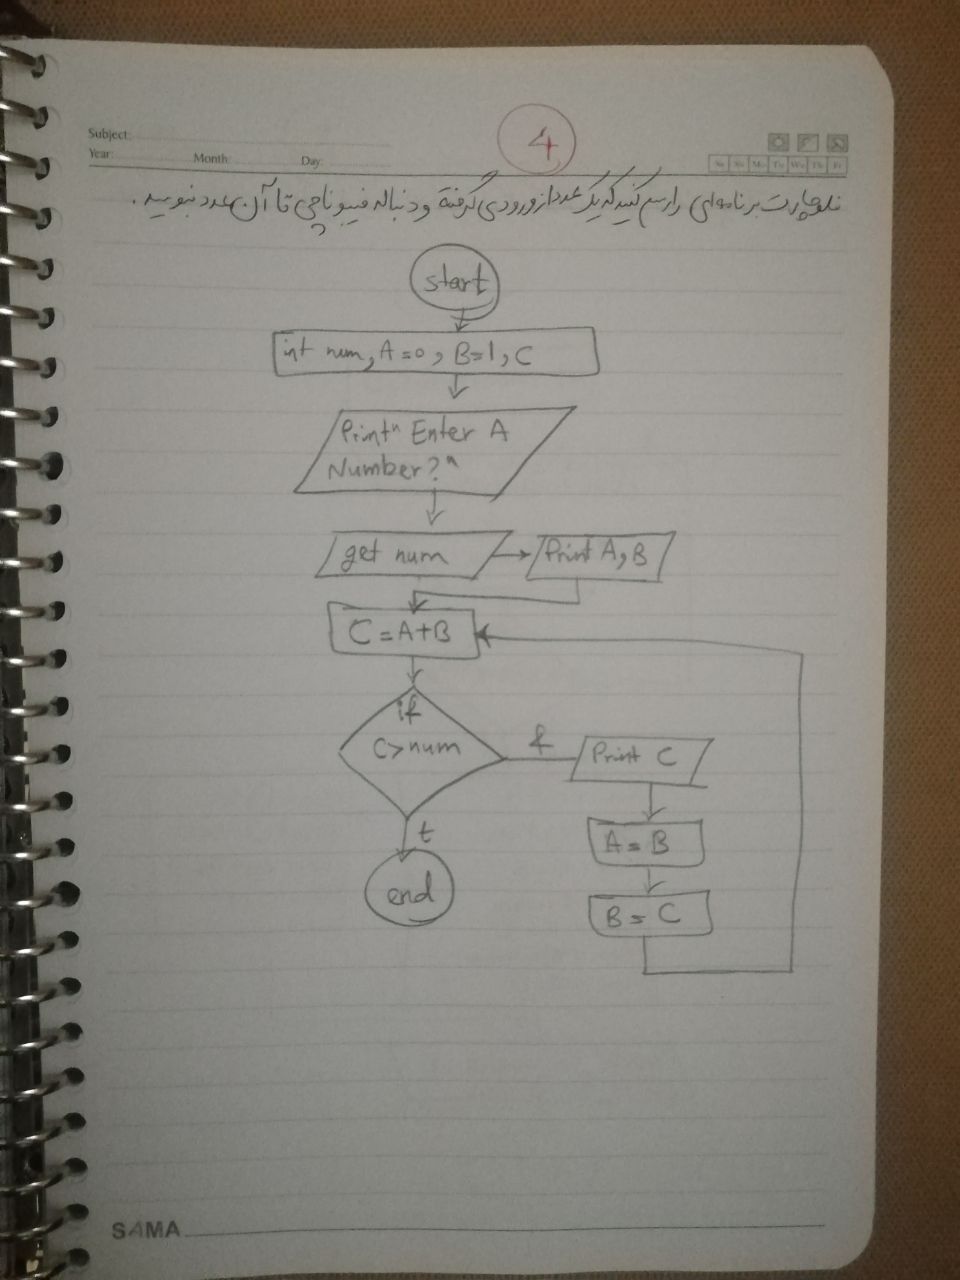 4
Subject:
Year: Month: Day:
Sa Su Mo Tu We Th Fr
فلوچارت برنامه‌ای را رسم کنید که یک عدد از ورودی گرفته و دنباله فیبوناچی تا آن عدد بنویسد.
start
int num, A=0, B=1, C
Print" Enter A
Number?"
get num
Print A,B
C=A+B
if
C>num
f
Print C
t
A=B
end
B=C
SAMA